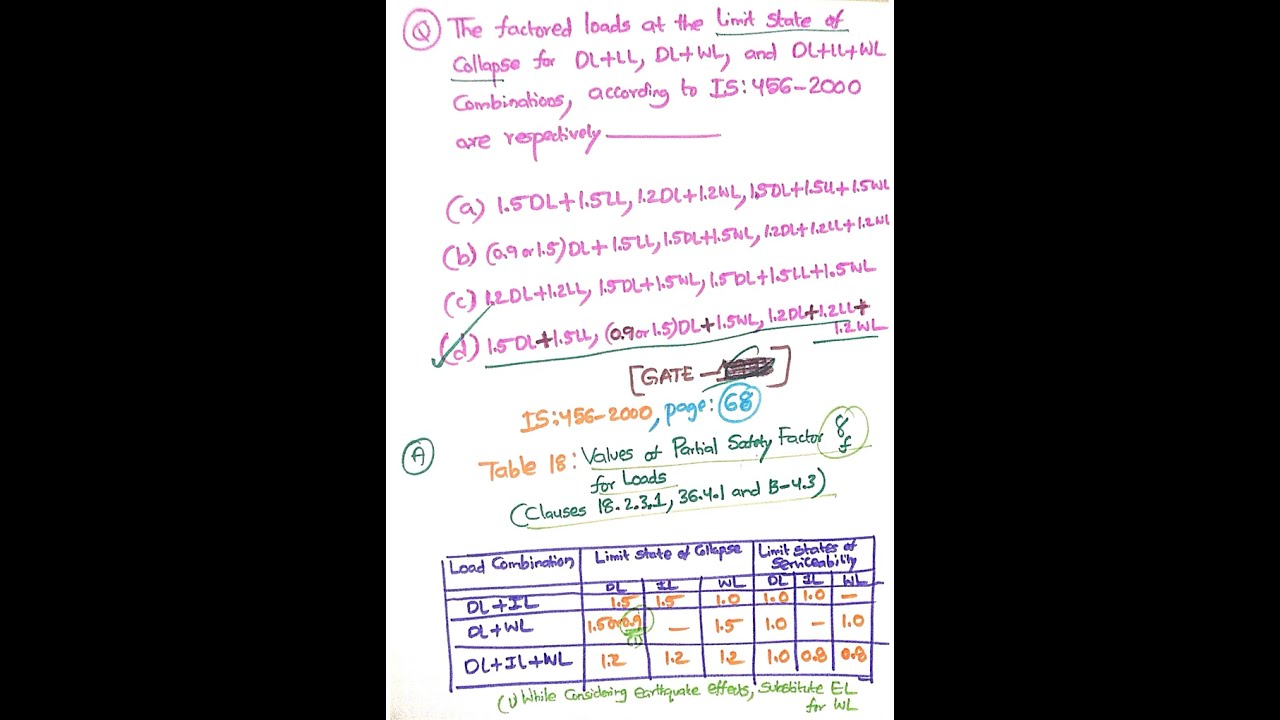 Q The factored loads at the Limit State of
Collapse for DL+LL, DL+WL, and DL+LL+WL
Combinations, according to IS:456-2000
are respectively
(a) 1.5DL+1.5LL, 1.2DL+1.2WL, 1.5DL+1.5LL+1.5WL
(b) (0.9 or 1.5)DL+1.5LL, 1.5DL+1.5WL, 1.2DL+1.2LL+1.2WL
(c) 1.2DL+1.2LL, 1.5DL+1.5WL, 1.5DL+1.5LL+1.5WL
(d) 1.5DL+1.5LL, (0.9 or 1.5)DL+1.5WL, 1.2DL+1.2LL+
1.2WL
[GATE - ]
IS:456-2000, page: 68
A Table 18: Values of Partial Safety Factor 8f
for Loads
(Clauses 18.2.3.1, 36.4.1 and B-4.3)
Load Combination Limit State of Collapse Limit States of
Serviceability
DL IL WL DL IL WL
DL+IL 1.5 1.5 1.0 1.0 1.0 —
DL+WL 1.5 or 0.9 — 1.5 1.0 — 1.0
(1)
DL+IL+WL 1.2 1.2 1.2 1.0 0.8 0.8
(1) While Considering earthquake effects, Substitute EL
for WL